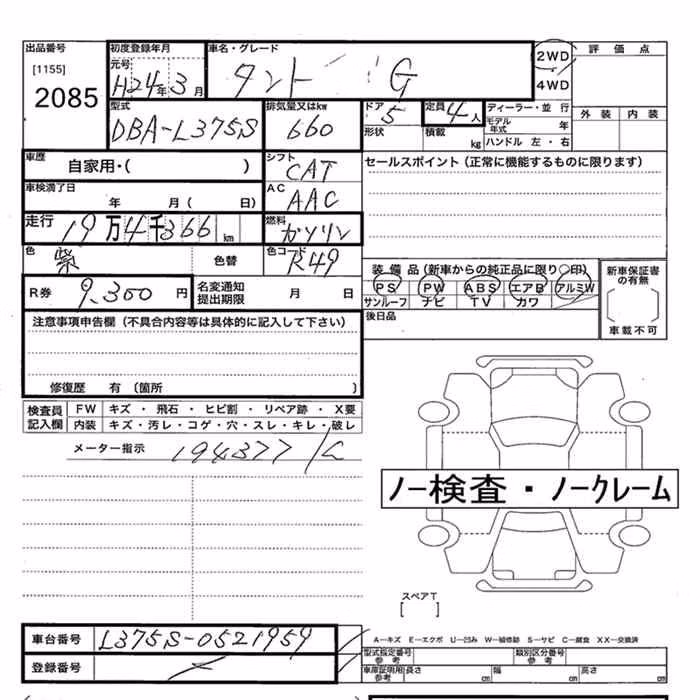 出品番号 初度登録年月 車名・グレード 2WD 評価点
[1155] 元号 H24年3月 タント G ・
2085 4WD
型式 排気量又はkw ドア 5 定員 4人 ディーラー・並 行 外装 内装
DBA-L375S 660 形状 積載 kg モデル年式 年
ハンドル 左・右
車歴 自家用・( ) シフト CAT セールスポイント(正常に機能するものに限ります)
車検満了日 年 月( 日) AC AAC
走行 19万4千366km 燃料 ガソリン
色 紫 色替 色コード R49 装備品(新車からの純正品に限り○印) 新車保証書の有無
PS PW ABS エアB アルミW
R券 9,300円 名変通知提出期限 月 日 サンルーフ ナビ TV カワ
後日品 車載不可
注意事項申告欄(不具合内容等は具体的に記入して下さい)
修復歴 有(箇所 )
検査員記入欄 FW キズ・飛石・ヒビ割・リペア跡・X要
内装 キズ・汚レ・コゲ・穴・スレ・キレ・破レ
メーター指示 194377
ノー検査・ノークレーム
スペアT
[ ]
車台番号 L375S-0521959 A-キズ E-エクボ U-凹み W-補修跡 S-サビ C-腐食 XX-交換済
登録番号 型式指定番号 参考 類別区分番号 参考
車庫証明用 参考 長さ cm 幅 cm 高さ cm